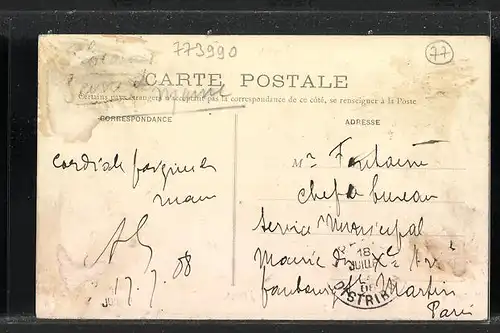 773990
77
Seine & Marne
CARTE POSTALE
Certains pays étrangers n'acceptant pas la correspondance de ce côté, se renseigner à la Poste
CORRESPONDANCE
ADRESSE
Mr Fontaine
Cordiale poignée de
main
chef de bureau
Service Municipal
Mairie du Xe Arrt
faubourg St Martin
Paris
17.7.08
18
JUIL
DISTRIB